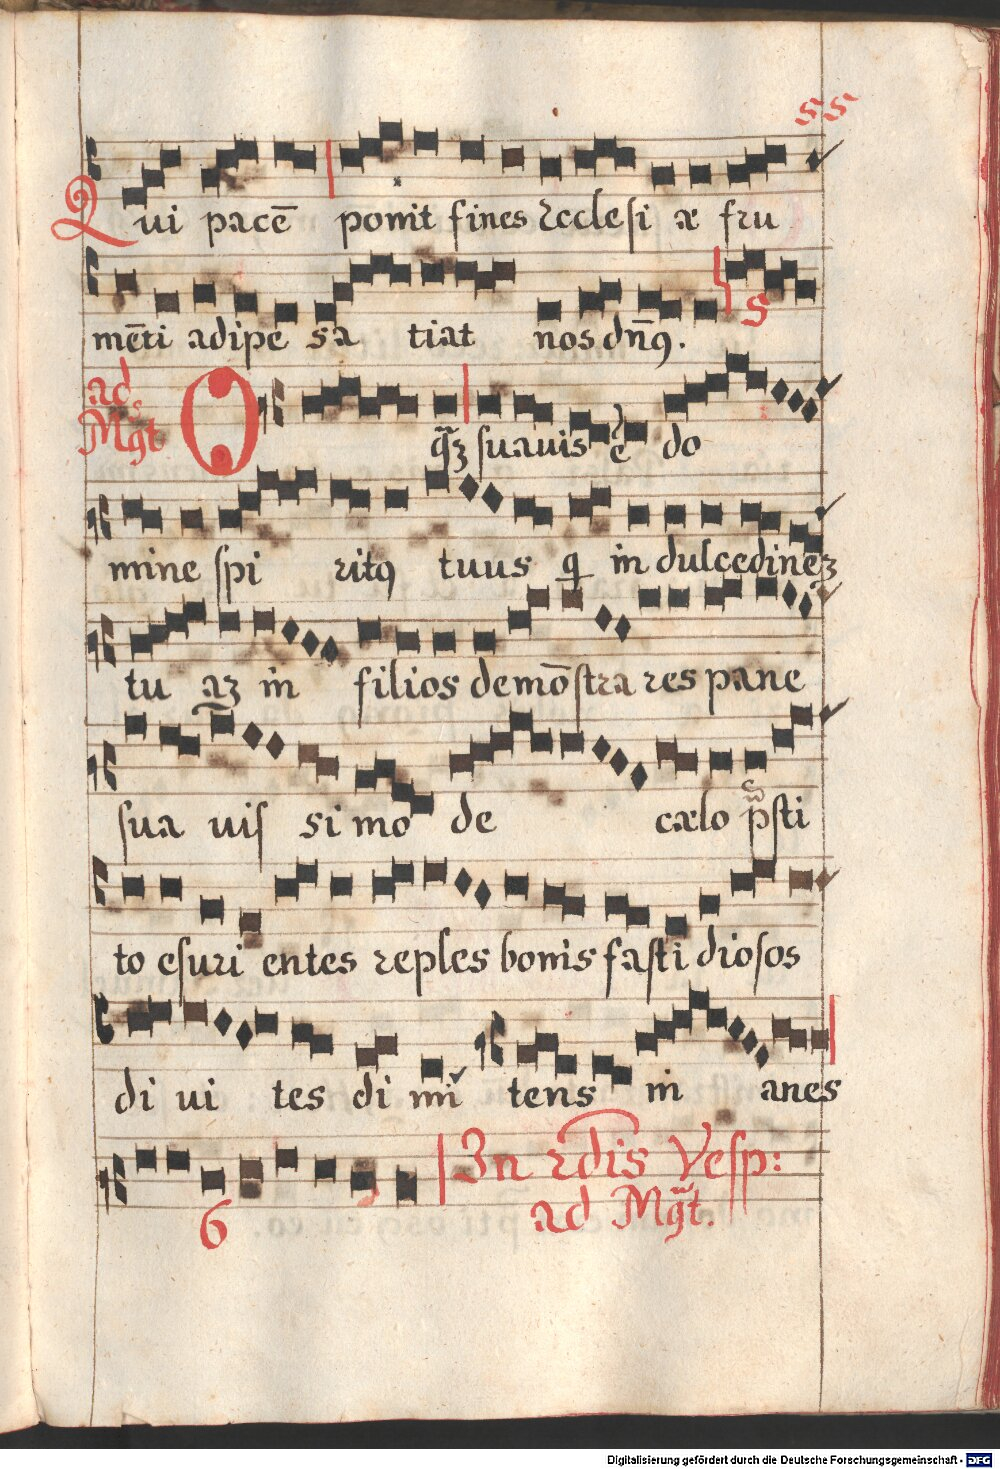 ss
Qui pacē ponit fines ecclesi æ fru
mēti adipe sa tiat nos dn̄ꝯ.
s
ad
Mg̃t
O q̃ꝫ suauis ē do
mine spi ritꝯ tuus q̇ in dulcedineꝫ
tu aꝫ in filios demōstra res pane
sua uis si mo de cælo p̄sti
to esuri entes reples bonis fasti diosos
di ui tes di mi tens in anes
In r̄dis Vesp:
6 ad Mg̃t.
Digitalisierung gefördert durch die Deutsche Forschungsgemeinschaft - DFG